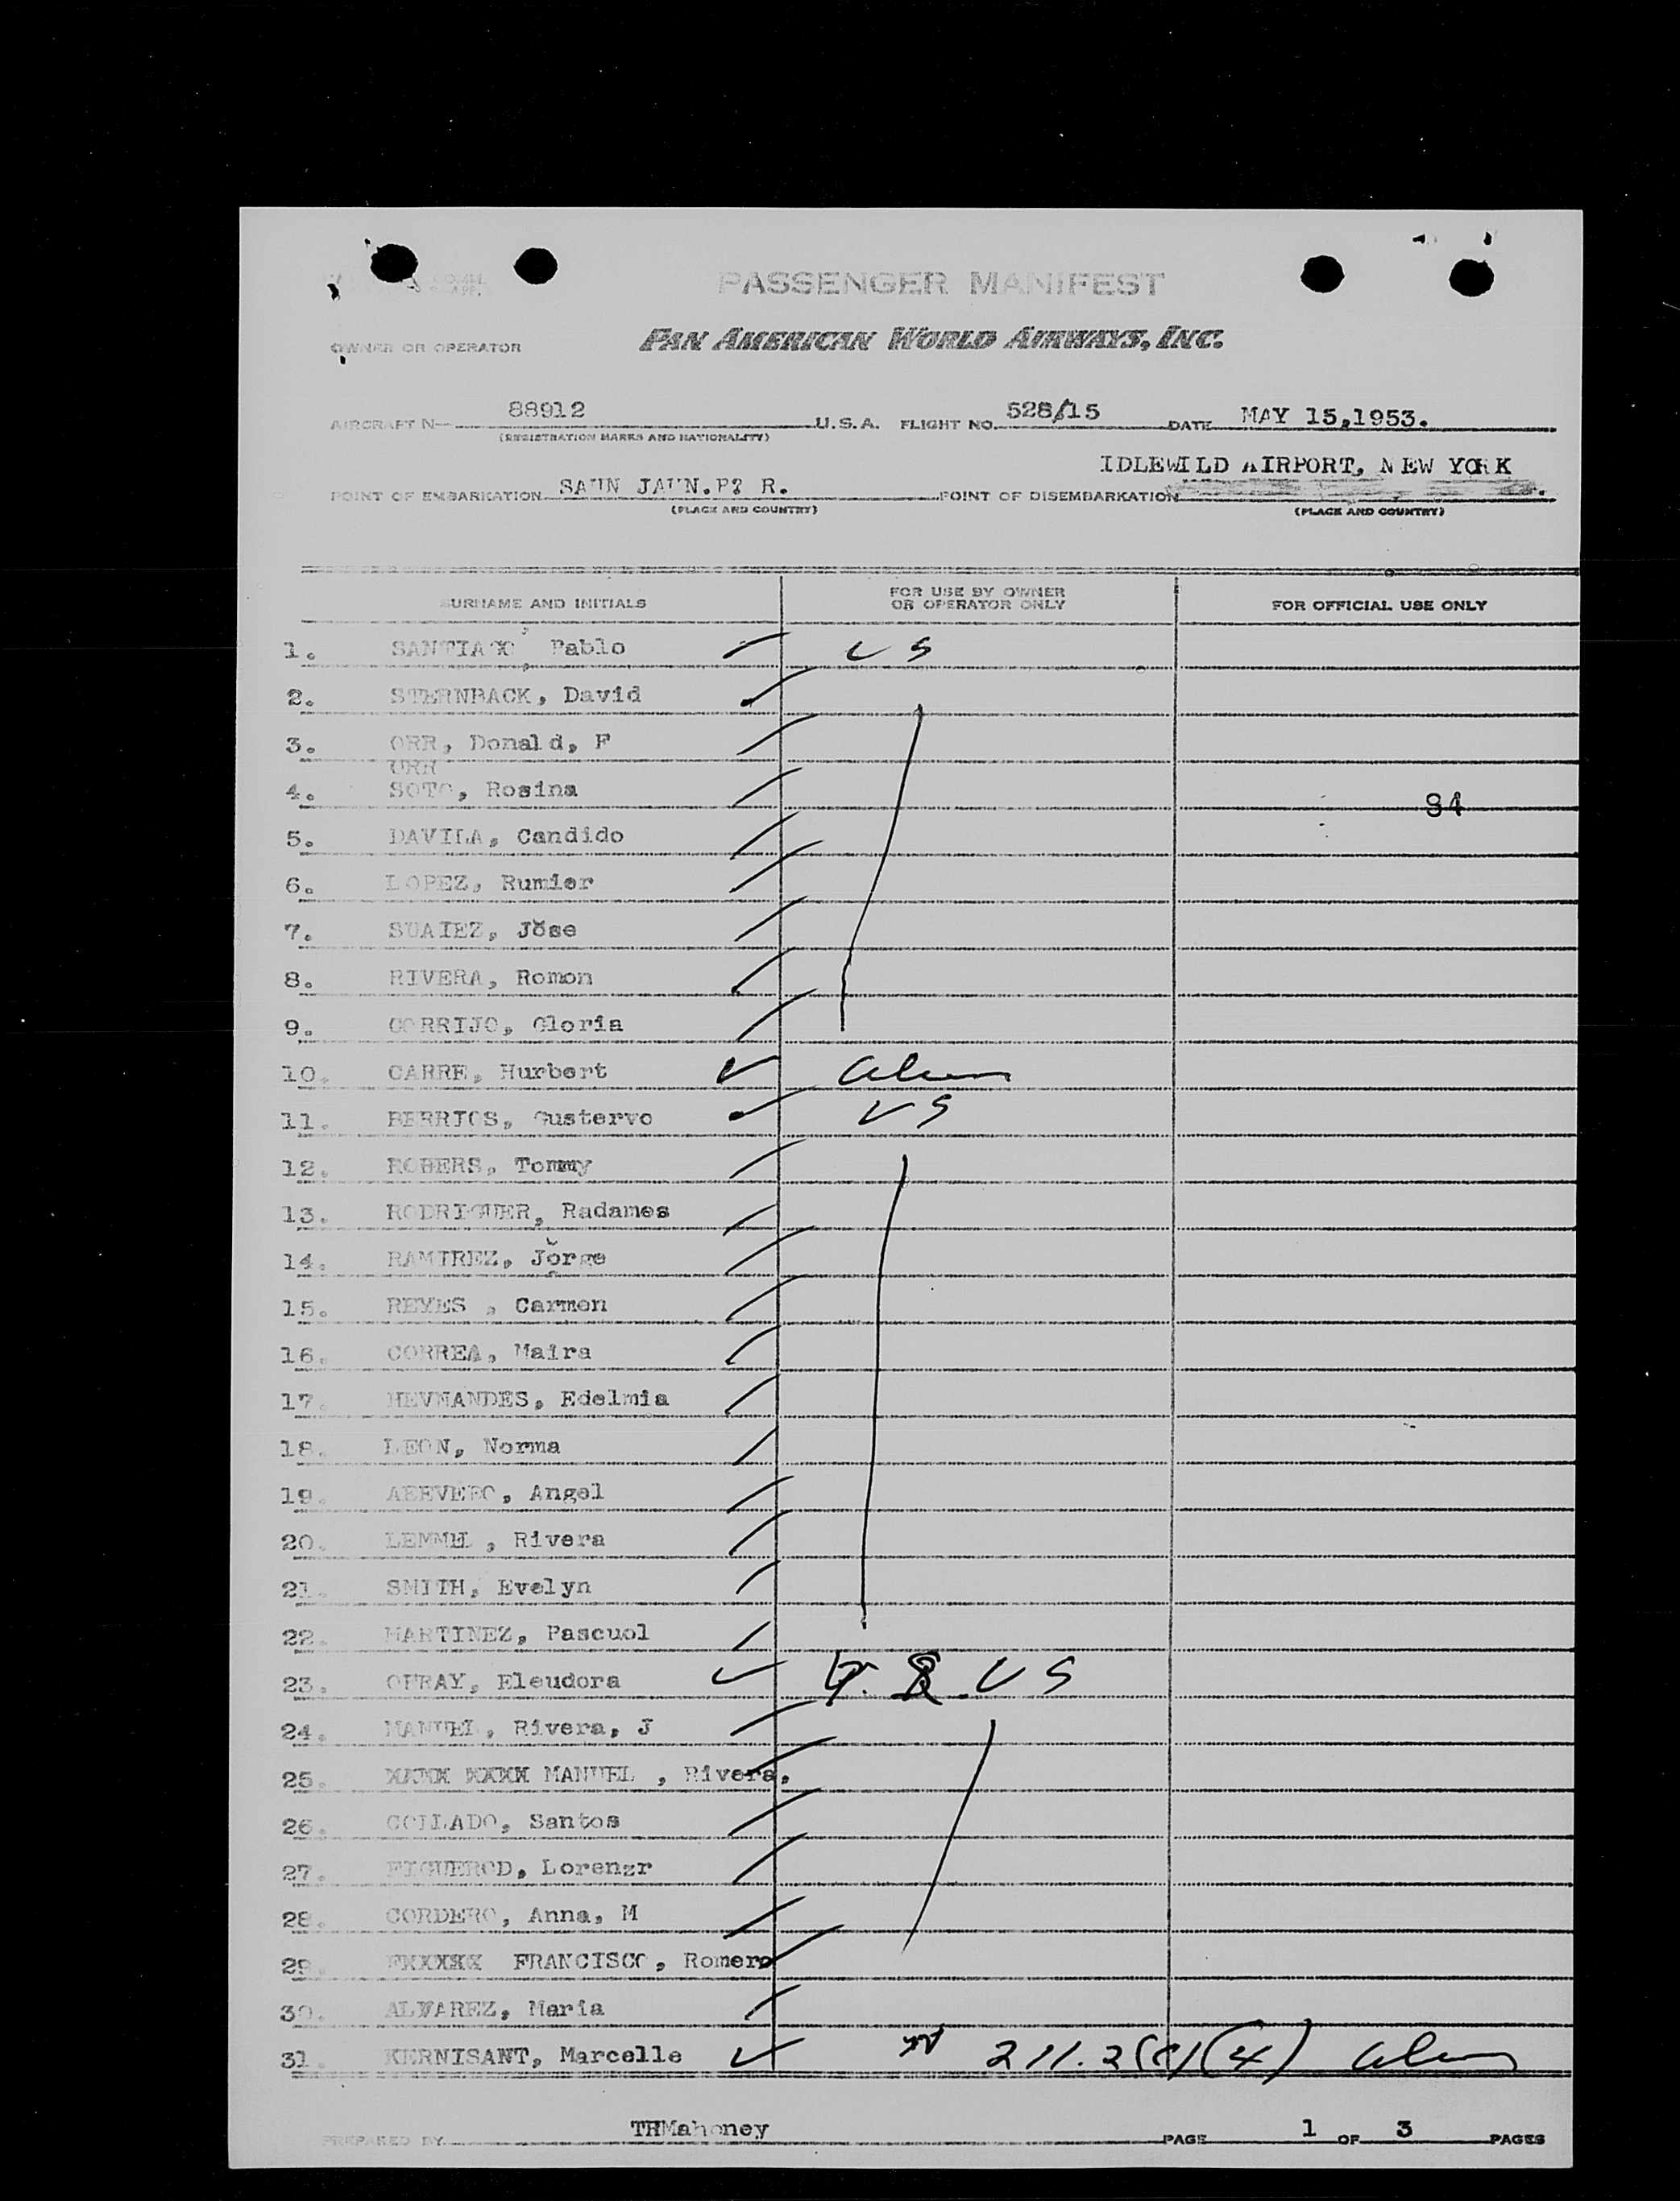 PASSENGER MANIFEST
OWNER OR OPERATOR PAN AMERICAN WORLD AIRWAYS, INC.
AIRCRAFT N— 88912 U.S.A. FLIGHT NO. 528/15 DATE MAY 15,1953.
(REGISTRATION MARKS AND NATIONALITY)
IDLEWILD AIRPORT, NEW YORK
POINT OF EMBARKATION SAUN JAUN.P? R. POINT OF DISEMBARKATION
(PLACE AND COUNTRY) (PLACE AND COUNTRY)
SURNAME AND INITIALS FOR USE BY OWNER OR OPERATOR ONLY FOR OFFICIAL USE ONLY
1. Pablo US
2. STERNBACK, David
3. ORR, Donald, F
ORR
4. SOTO, Rosina 84
5. DAVILA, Candido
6. LOPEZ, Rumier
7. SUAIEZ, Jose
8. RIVERA, Romon
9. CORRIJO, Gloria
10. CARRE, Hurbert alien
11. BERRIOS, Gustervo US
12. ROBERS, Tommy
13. RODRIGUER, Radames
14. RAMIREZ, Jorge
15. REYES , Carmen
16. CORREA, Maira
17. HEVNANDES, Edelmia
18. LEON, Norma
19. Angel
20. , Rivera
21. SMITH, Evelyn
22. MARTINEZ, Pascuol
23. Eleudora US
24. MANUEL, Rivera, J
25. MANUEL , Rivera,
26. COLLADO, Santos
27. FIGUEROD, Lorenzr
28. CORDERO, Anna, M
29. FRANCISCO, Romero
30. ALVAREZ, Maria
31. KERNISANT, Marcelle 211.2(c)(4) alien
PREPARED BY THMahoney PAGE 1 OF 3 PAGES